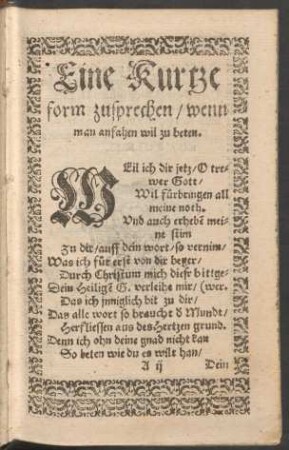 Eine Kurtze
form zusprechen / wenn
man anfahen wil zu beten.
WEil ich dir jetz / O tre-
wer Gott /
Wil fürbringen all
meine noth.
Vnd auch erhebẽ mei-
ne stim
Zu dir / auff dein wort / so vernim /
Was ich für erst von dir beger /
Durch Christum mich diese bittge-
Dein Heiligẽ G. verleihe mir / (wer.
Das ich jnniglich bit zu dir /
Das alle wort so braucht d Mundt /
Herfliessen aus des Hertzen grund.
Denn ich ohn deine gnad nicht kan
So beten wie du es wilt han /
A ij Dein